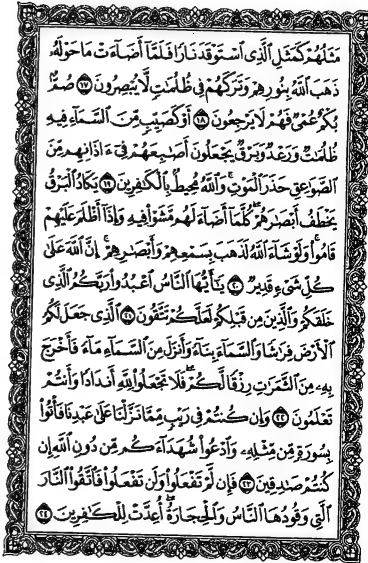 مَثَلُهُمْ كَمَثَلِ الَّذِى اسْتَوْقَدَ نَارًا فَلَمَّآ أَضَآءَتْ مَا حَوْلَهُۥ
ذَهَبَ اللَّهُ بِنُورِهِمْ وَتَرَكَهُمْ فِى ظُلُمَٰتٍ لَّا يُبْصِرُونَ ١٧ صُمٌّۢ
بُكْمٌ عُمْىٌ فَهُمْ لَا يَرْجِعُونَ ١٨ أَوْ كَصَيِّبٍ مِّنَ السَّمَآءِ فِيهِ
ظُلُمَٰتٌ وَرَعْدٌ وَبَرْقٌ يَجْعَلُونَ أَصَٰبِعَهُمْ فِىٓ ءَاذَانِهِم مِّنَ
الصَّوَٰعِقِ حَذَرَ الْمَوْتِ ۚ وَاللَّهُ مُحِيطٌۢ بِالْكَٰفِرِينَ ١٩ يَكَادُ الْبَرْقُ
يَخْطَفُ أَبْصَٰرَهُمْ ۖ كُلَّمَآ أَضَآءَ لَهُم مَّشَوْا۟ فِيهِ وَإِذَآ أَظْلَمَ عَلَيْهِمْ
قَامُوا۟ ۚ وَلَوْ شَآءَ اللَّهُ لَذَهَبَ بِسَمْعِهِمْ وَأَبْصَٰرِهِمْ ۚ إِنَّ اللَّهَ عَلَىٰ
كُلِّ شَىْءٍ قَدِيرٌ ٢٠ يَٰٓأَيُّهَا النَّاسُ اعْبُدُوا۟ رَبَّكُمُ الَّذِى
خَلَقَكُمْ وَالَّذِينَ مِن قَبْلِكُمْ لَعَلَّكُمْ تَتَّقُونَ ٢١ الَّذِى جَعَلَ لَكُمُ
الْأَرْضَ فِرَٰشًا وَالسَّمَآءَ بِنَآءً وَأَنزَلَ مِنَ السَّمَآءِ مَآءً فَأَخْرَجَ
بِهِۦ مِنَ الثَّمَرَٰتِ رِزْقًا لَّكُمْ ۖ فَلَا تَجْعَلُوا۟ لِلَّهِ أَندَادًا وَأَنتُمْ
تَعْلَمُونَ ٢٢ وَإِن كُنتُمْ فِى رَيْبٍ مِّمَّا نَزَّلْنَا عَلَىٰ عَبْدِنَا فَأْتُوا۟
بِسُورَةٍ مِّن مِّثْلِهِۦ وَادْعُوا۟ شُهَدَآءَكُم مِّن دُونِ اللَّهِ إِن
كُنتُمْ صَٰدِقِينَ ٢٣ فَإِن لَّمْ تَفْعَلُوا۟ وَلَن تَفْعَلُوا۟ فَاتَّقُوا۟ النَّارَ
الَّتِى وَقُودُهَا النَّاسُ وَالْحِجَارَةُ ۖ أُعِدَّتْ لِلْكَٰفِرِينَ ٢٤